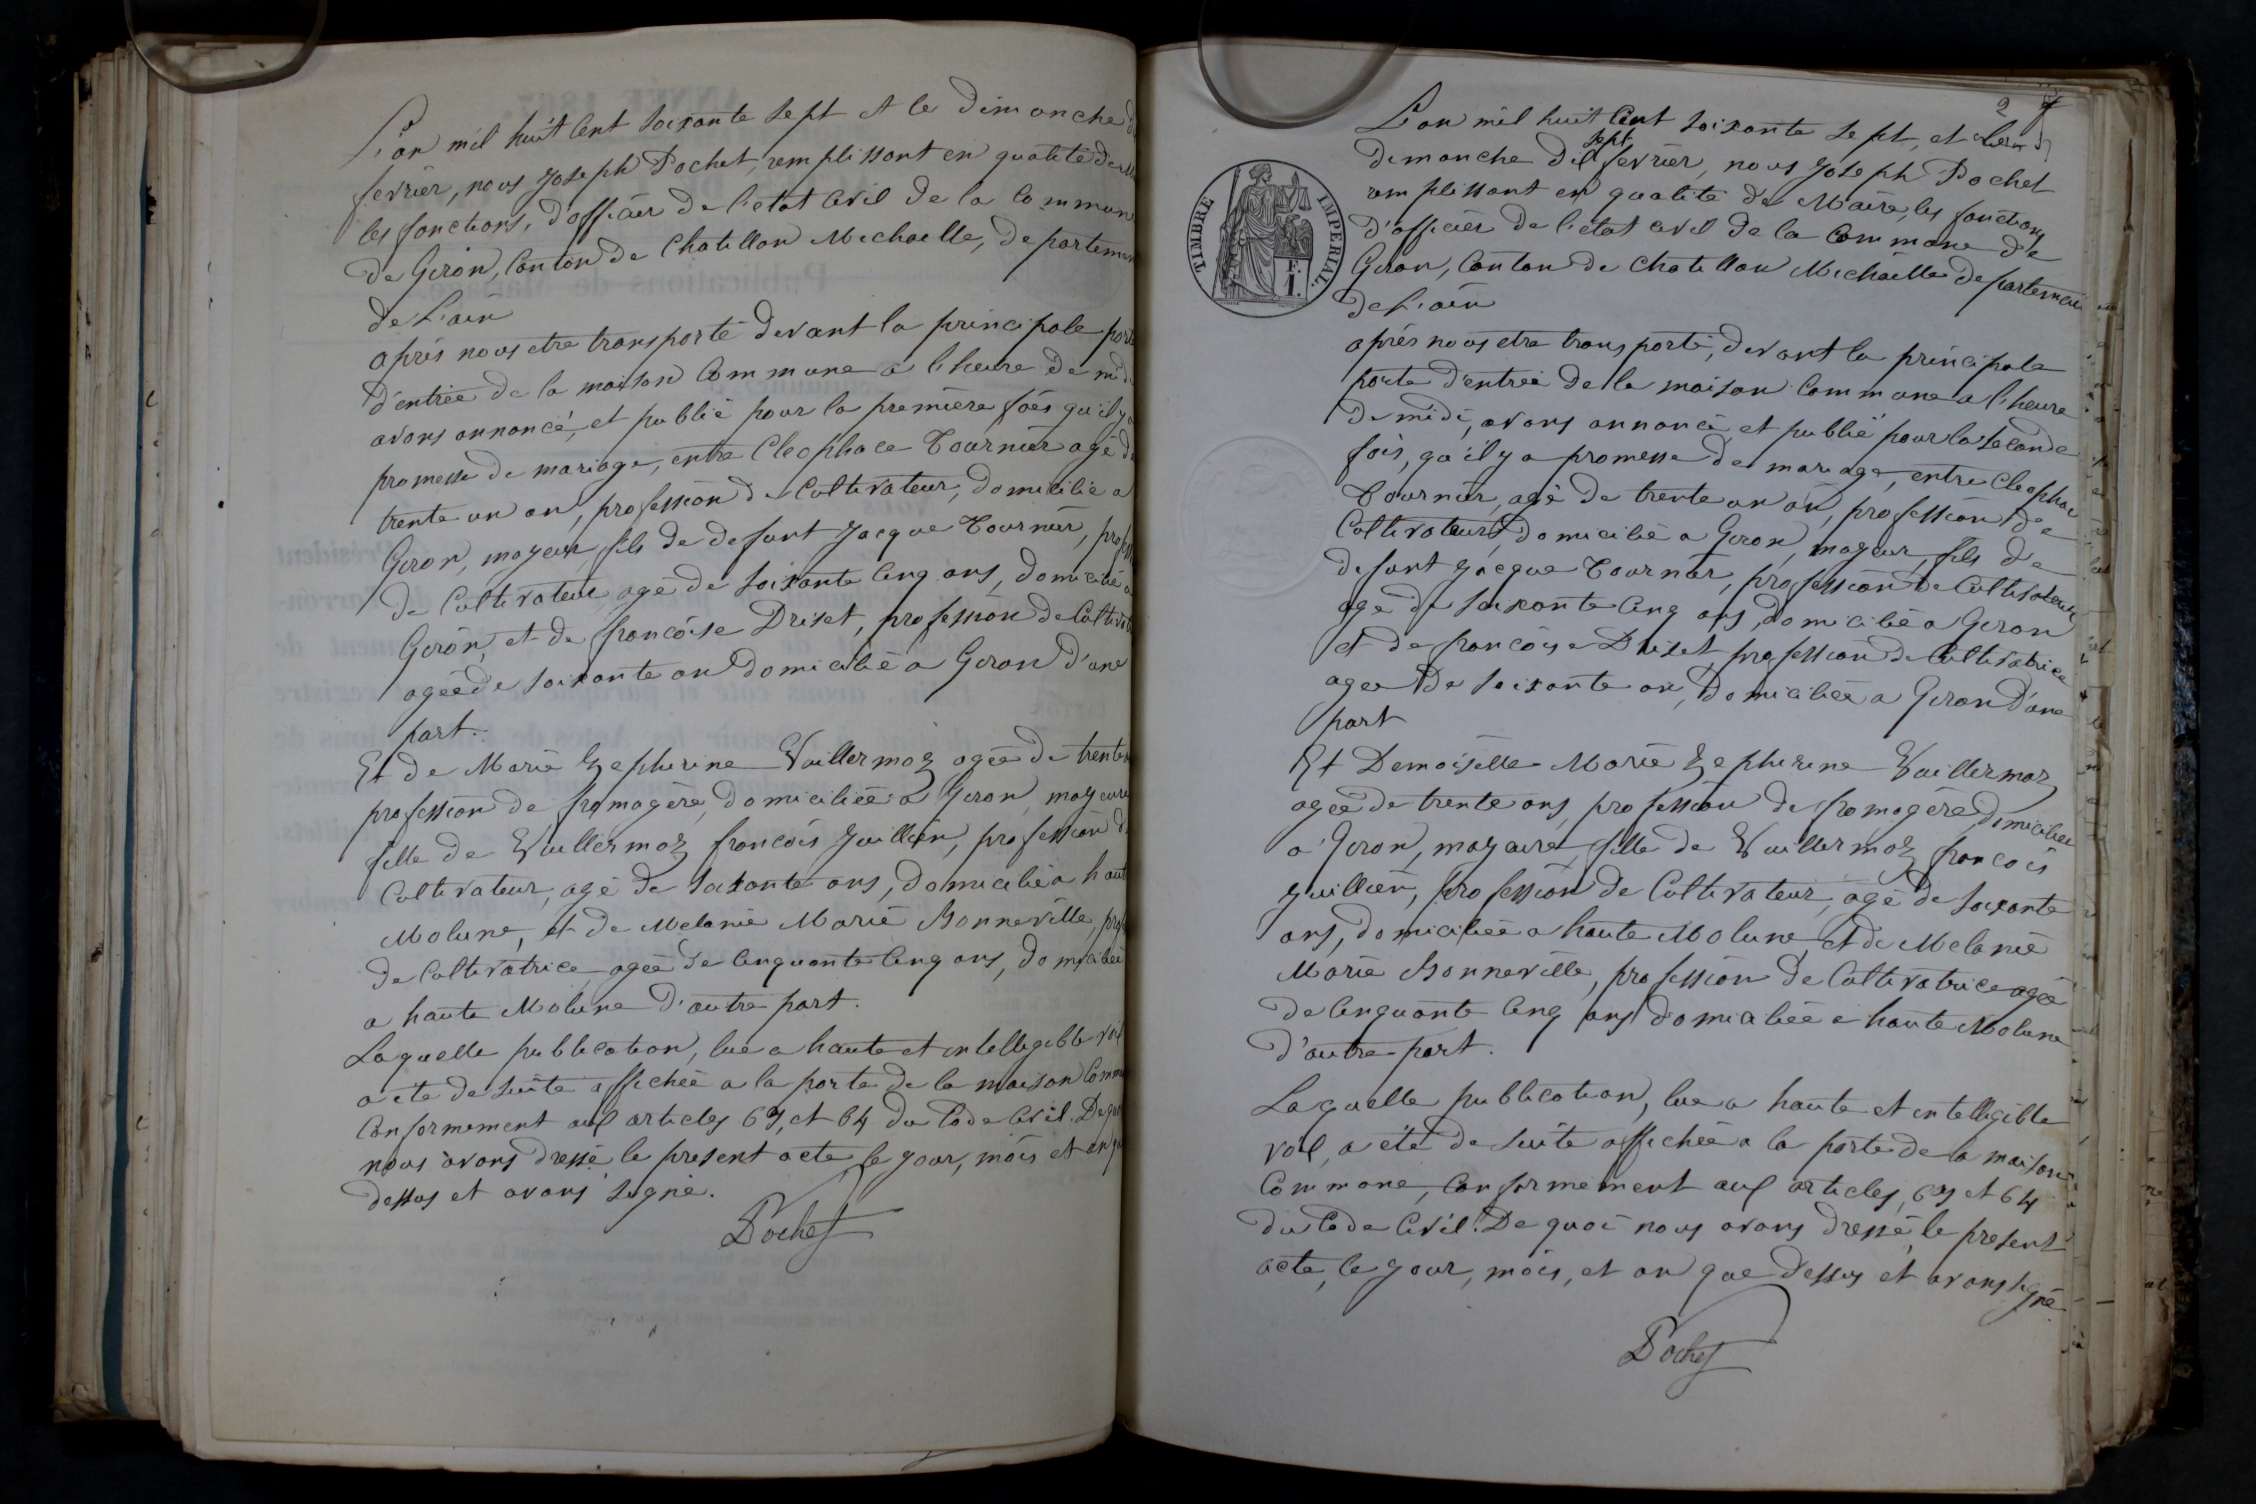 L'an mil huit Cent soixante sept et le Dimanche
fevrier, nous Joseph Pochet, remplissant en qualité de
les fonctions, d'officier de l'etat Civil de la Commun
de Giron, Canton de Chatillon Michaille, departemen
de L'ain
après nous etre transporté devant la principale porte
d'entrée de la maison Commune a l'heure de midi
avons annoncé, et publié pour la première fois qu'il y a
promesse de mariage, entre Cleophace Tournier agé de
trente un an, profession de Cultivateur, domicilié a
Giron, mayeur, fils de defunt Jacque Tournier, profess
de Cultivateur agé de soixante Cinq ans, domicilié a
Giron, et de françoise Driset, profession de Cultivat
agée de soixante an domicilié a Giron d'une
part.
Et de Marie Zephirine Vuillermoz agée de trente
profession de fromagère, domiciliée a Giron, mayeure
fille de Vuillermoz françois Juillien, profession d
Cultivateur, agé de soixante ans, domicilié a haut
Molune, et de Melanie Marie Bonneville, prof
de Cultivatrice agée de Cinquante Cinq ans, domiciliée
a haute Molune d'autre part.
Laquelle publication, lue a haute et intelligible voix
a été de suite affichée a la porte de la maison Comm
Conformement aux articles 63, et 64 du Code Civil. De quoi
nous avons dressé le present acte, le jour, mois et an que
dessus et avons signé.
Pochet
2
L'an mil huit Cent soixante sept, et le
sept
dimanche dix fevrier, nous Joseph Pochet
remplissant en qualité de Maire, les fonctions
d'officier de l'etat civil de la Commune de
Giron, Canton de Chatillon Michaille departemen
de L'ain
TIMBRE IMPERIAL.
F.
1.
après nous etre transporté, devant la principale
porte d'entrée de la maison Commune a l'heure
de midi, avons annoncé et publié pour la seconde
fois, qu'il y a promesse de mariage, entre Cleophac
Tournier, agé de trente un an, profession de
Cultivateur, domicilié a Giron, mayeur, fils de
defunt Jacque Tournier, profession de Cultivateur
agé de soixante Cinq ans, domicilié a Giron
et de françoise Driset, profession de Cultivatrice
agée de soixante an, domiciliée a Giron d'une
part
Et Demoiselle Marie Zephirine Vuillermoz
agée de trente ans, profession de fromagère, domiciliée
a Giron, mayeure, fille de Vuillermoz françois
Juillien, profession de Cultivateur, agé de soixante
ans, domiciliée a haute Molune, et de Melanie
Marie Bonneville, profession de Cultivatrice agée
de Cinquante Cinq ans domiciliée a haute Molune
d'autre part.
Laquelle publication, lue a haute et intelligible
voix, a été de suite affichée a la porte de la maison
Commune, Conformement aux articles, 63 et 64
du Code Civil. De quoi nous avons dressé, le present
acte, le jour, mois, et an que dessus et avons signé.
Pochet